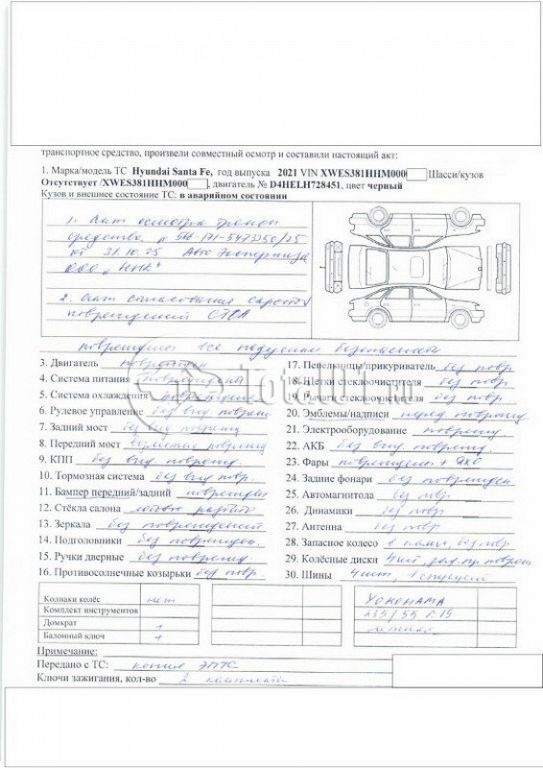 транспортное средство, произвели совместный осмотр и составили настоящий акт:
1. Марка/модель ТС Hyundai Santa Fe, год выпуска 2021 VIN XWES381HHM000 Шасси/кузов
Отсутствует /XWES381HHM000, двигатель № D4HELH728451, цвет черный
Кузов и внешнее состояние ТС: в аварийном состоянии
1. Акт осмотра трансп.
средства
от 31.10.25 Авто Экспертиза
ООО "НИК"
2. Акт согласования скрытых
повреждений СТОА
повреждены все подушки безопасности
3. Двигатель поврежден
4. Система питания повреждена
5. Система охлаждения повреждена
6. Рулевое управление без вид поврежд
7. Задний мост без вид поврежд
8. Передний мост поврежд
9. КПП без вид поврежд
10. Тормозная система без вид повр.
11. Бампер передний/задний поврежден
12. Стёкла салона разбито
13. Зеркала без повреждений
14. Подголовники без повреждени
15. Ручки дверные без поврежд
16. Противосолнечные козырьки без повр
17. Пепельницы/прикуриватель без повр
18. Щетки стеклоочистителя без повр
19. Рычаги стеклоочистителя без повр
20. Эмблемы/надписи перед поврежд
21. Электрооборудование поврежд.
22. АКБ без вид. поврежд.
23. Фары повреждены
24. Задние фонари без поврежден
25. Автомагнитола без повр.
26. Динамики без повр
27. Антенна без повр
28. Запасное колесо без повр
29. Колёсные диски 4 шт,
30. Шины 4 шт,
Колпаки колёс нет
Комплект инструментов
Домкрат +
Балонный ключ +
YOKOHAMA
235/55 R19
Примечание:
Передано с ТС: копия ЭПТС
Ключи зажигания, кол-во 2 комплекта
Total01.ru